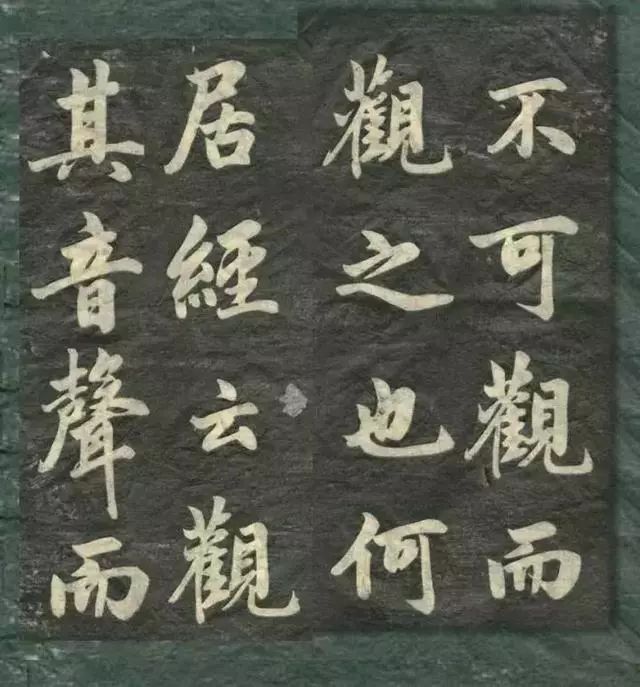 不可觀而
觀之也何
居經云觀
其音聲而